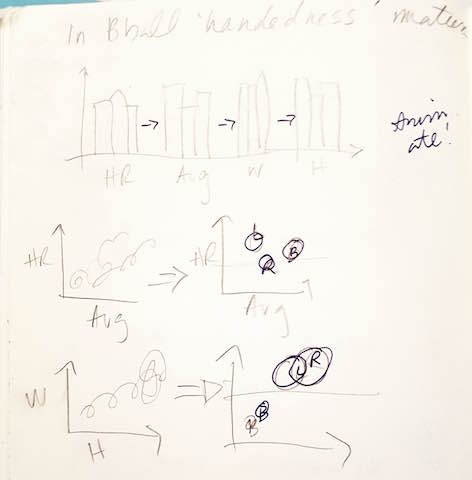 In Bball 'handedness' matters
HR Avg W H
Anim
ate!
HR
Avg
HR
L
R
B
Avg
W
H
L
R
B